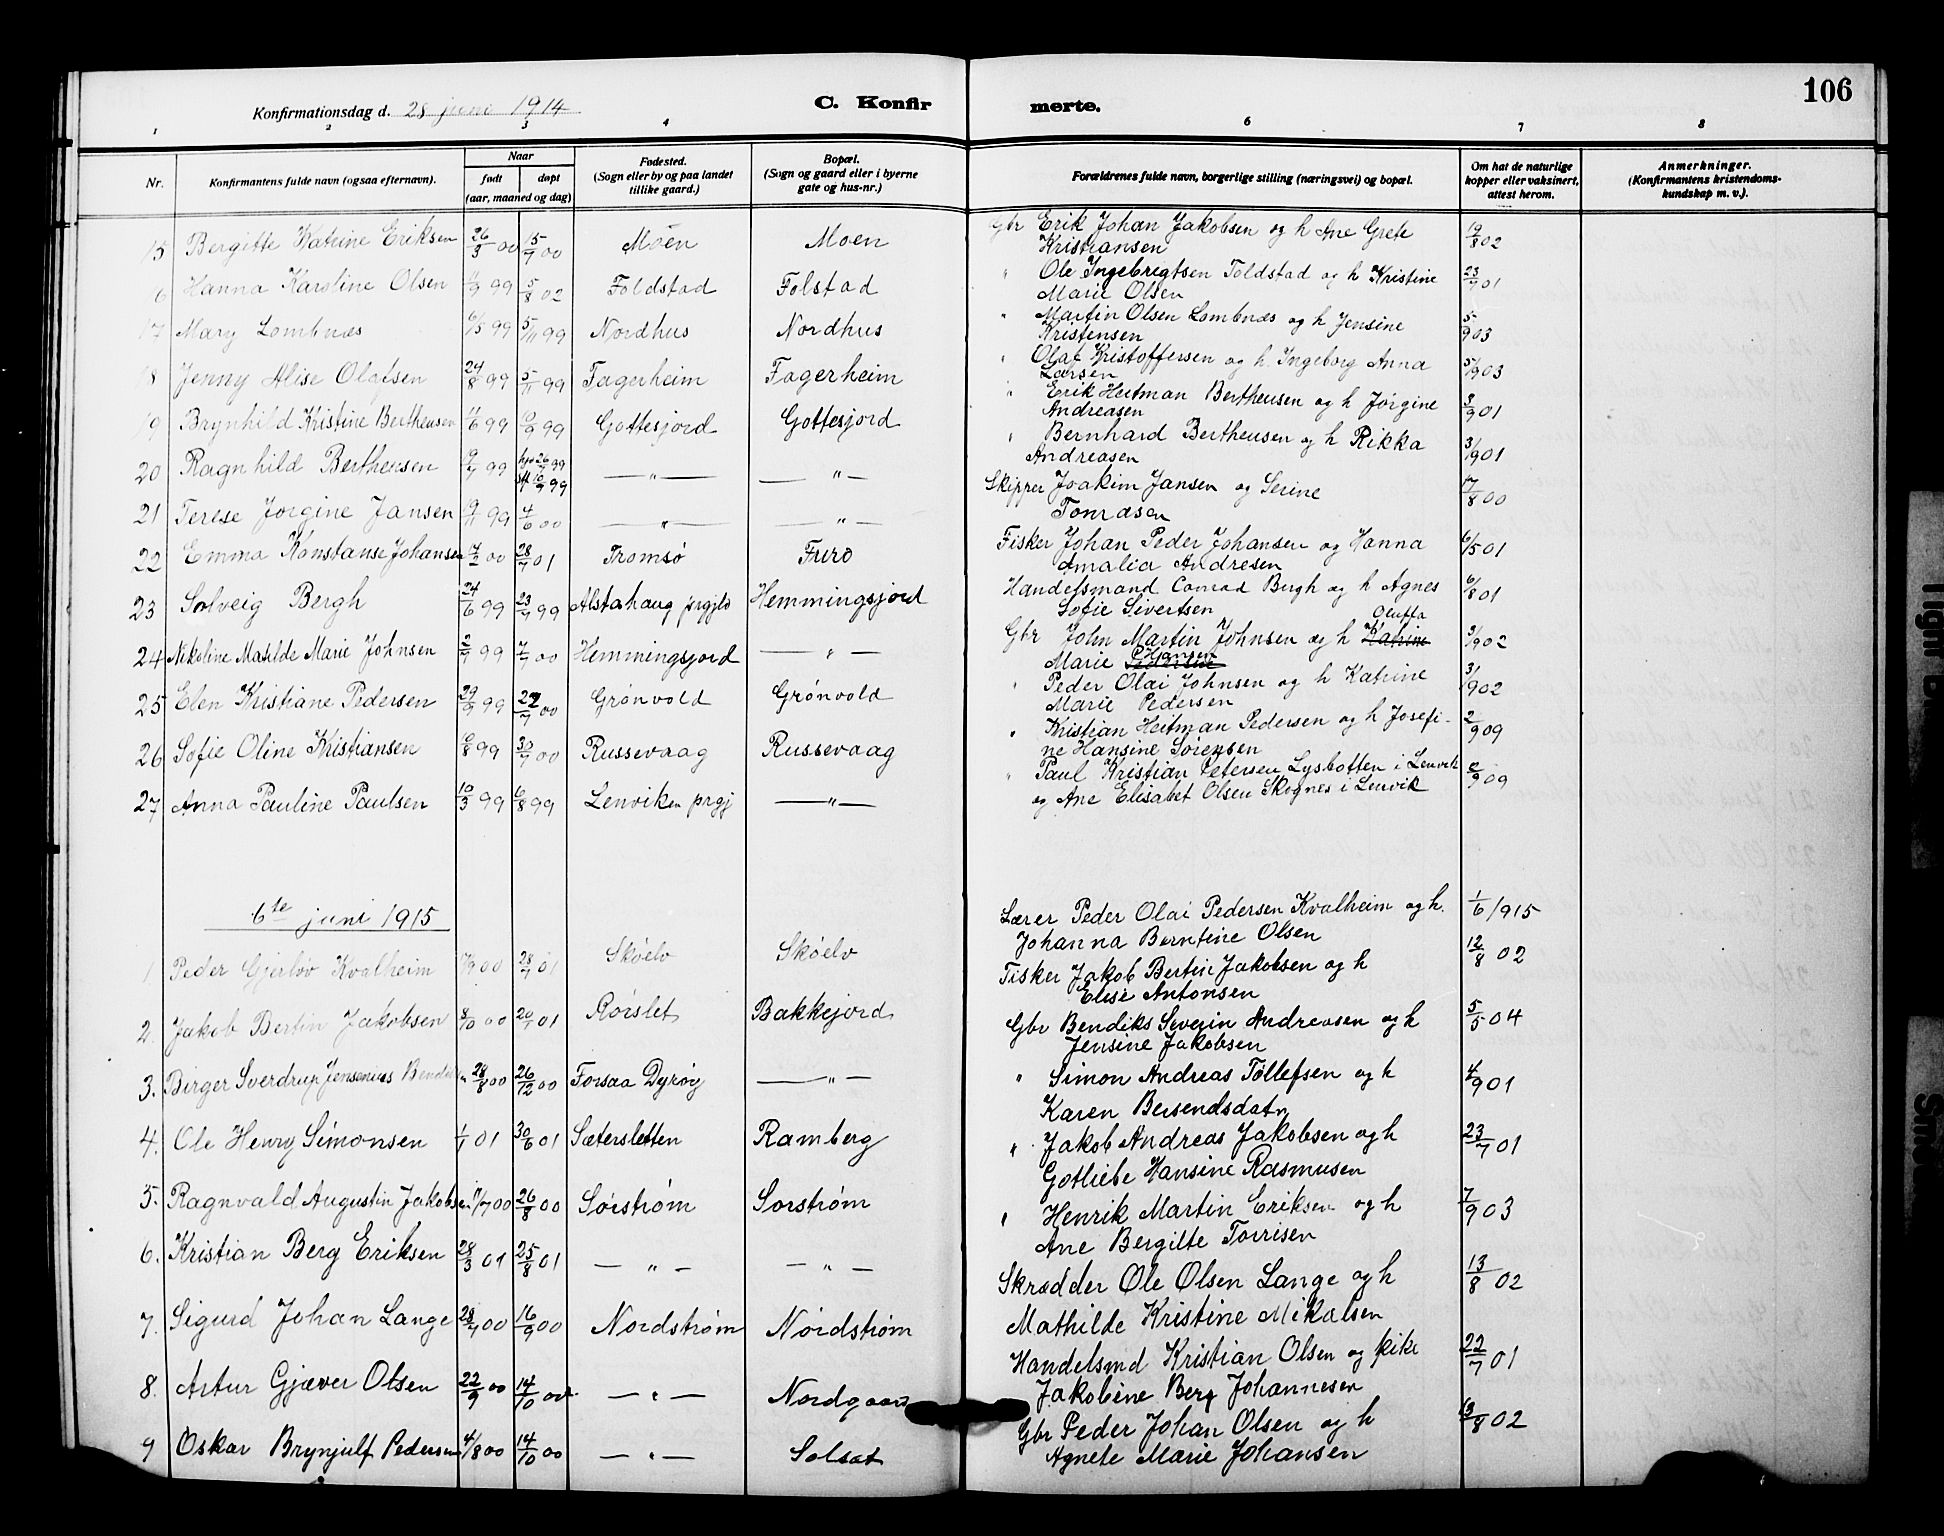 106
Konfirmationsdag d. 28 juni 1914
C. Konfirmerte.
1 2 3 4 6 7 8
Nr.
Konfirmantens fulde navn (ogsaa efternavn).
Naar
født døpt
(aar, maaned og dag)
Fødested.
(Sogn eller by og paa landet
tillike gaard.)
Bopæl.
(Sogn og gaard eller i byerne
gate og hus-nr.)
Forældrenes fulde navn, borgerlige stilling (næringsvei) og bopæl.
Om hat de naturlige
kopper eller vaksinert,
attest herom.
Anmerkninger.
(Konfirmantens kristendoms-
kundskap m. v.)
15 Bergitte Katrine Eriksen 26/3 00 15/7 00 Moen Moen Gbr Erik Johan Jakobsen og h Ane Grete 19/8 02
Kristiansen
6 Hanna Karoline Olsen 99 5/8 02 Foldstad Folstad " Ole Ingebrigtsen Foldstad og h Kristine 23/7 01
Marie Olsen
17 Mary Lombnæs 6/5 99 5/11 99 Nordhus Nordhus " Martin Olsen Lombnæs og h Jensine 5/9 03
Kristensen
18 Jenny Alise Olafsen 24/8 99 5/11 99 Fagerheim Fagerheim " Olaf Kristoffersen og h. Ingeborg Anna 5/9 03
Larsen
19 Brynhild Kristine Bertheusen 11/6 99 10/9 99 Gottesjord Gottesjord " Erik Heitman Bertheusen og h Jørgine 3/9 01
Andreasen
20 Ragnhild Bertheusen 9/7 99 hjd 26/7 99 — " — — " — " Bernhard Bertheusen og h Rikka 3/9 01
st 10/9 99
Andreasen
21 Terese Jørgine Jansen 9/11 99 4/6 00 — " — — " — Skipper Joakim Jansen og Serine 17/8 00
Tomasen
22 Emma Konstanse Johansen 14/2 00 28/7 01 Tromsø Fisker Johan Peder Johansen og Hanna 6/5 01
Amalia Andresen
23 Solveig Bergh 24/6 99 23/7 99 Alstahaug prgjld Hemmingsjord Handelsmand Conrad Bergh og h Agnes 6/8 01
Sofie Sivertsen
24 Nikoline Matilde Marie Johnsen 2/7 99 7/7 00 Hemmingsjord — " — Gbr John Martin Johnsen og h Oluffa Katrine 3/9 02
Marie Hansen
25 Elen Kristiane Pedersen 29/9 99 22/7 00 Grønvold Grønvold " Peder Olai Johnsen og h Katrine 3/9 02
Marie Pedersen
26 Sofie Oline Kristiansen 6/8 99 30/7 00 Russevaag Russevaag " Kristian Heitman Pedersen og h Josefi- 2/9 09
ne Hansine Sørensen
27 Anna Pauline Paulsen 10/3 99 6/8 99 Lenviken prgj — " — " Paul Kristian Petersen Lysbotten i Lenvik 2/9 09
og Ane Elisabet Olsen Skognes i Lenvik
6te juni 1915
1 Peder Gjerløv Kvalheim 00 28/7 01 Skøelv Skøelv Lærer Peder Olai Pedersen Kvalheim og h. 1/6 / 915
Johanna Berntine Olsen
2. Jakob Bertin Jakobsen 8/10 00 20/7 01 Rørslet Bakkejord Fisker Jakob Bertin Jakobsen og h 12/8 02
Elise Antonsen
3. Birger Sverdrup Jensenius 28/8 00 26/12 00 Forsaa Dyrøy — " — Gbr Bendiks Severin Andreasen og h 5/5 04
Jensine Jakobsen
4. Ole Henry Simonsen 1/1 01 30/6 01 Sætersletten Ramberg " Simon Andreas Tøllefsen og h 4/9 01
Karen Bersendsdatn
5. Ragnvald Augustin Jakobsen 11/7 00 26/8 00 Sørstrøm Sørstrøm " Jakob Andreas Jakobsen og h 23/7 01
Gotliebe Hansine Rasmusen
6. Kristian Berg Eriksen 28/3 01 25/8 01 — " — — " — " Henrik Martin Eriksen og h 7/9 03
Ane Bergitte Torrisen
7. Sigurd Johan Lange 28/7 00 16/9 00 Nordstrøm Nordstrøm Skrædder Ole Olsen Lange og h 13/8 02
Mathilde Kristine Mikalsen
8. Artur Gjæver Olsen 22/9 00 14/10 00 — " — Nordgaard Handelsmd Kristian Olsen og pike 22/7 01
Jakobine Berg Johannesen
9 Oskar Brynjulf Pedersen 4/8 00 14/10 00 — " — Solsat Gbr Peder Johan Olsen og h 13/8 02
Agnete Marie Johansen